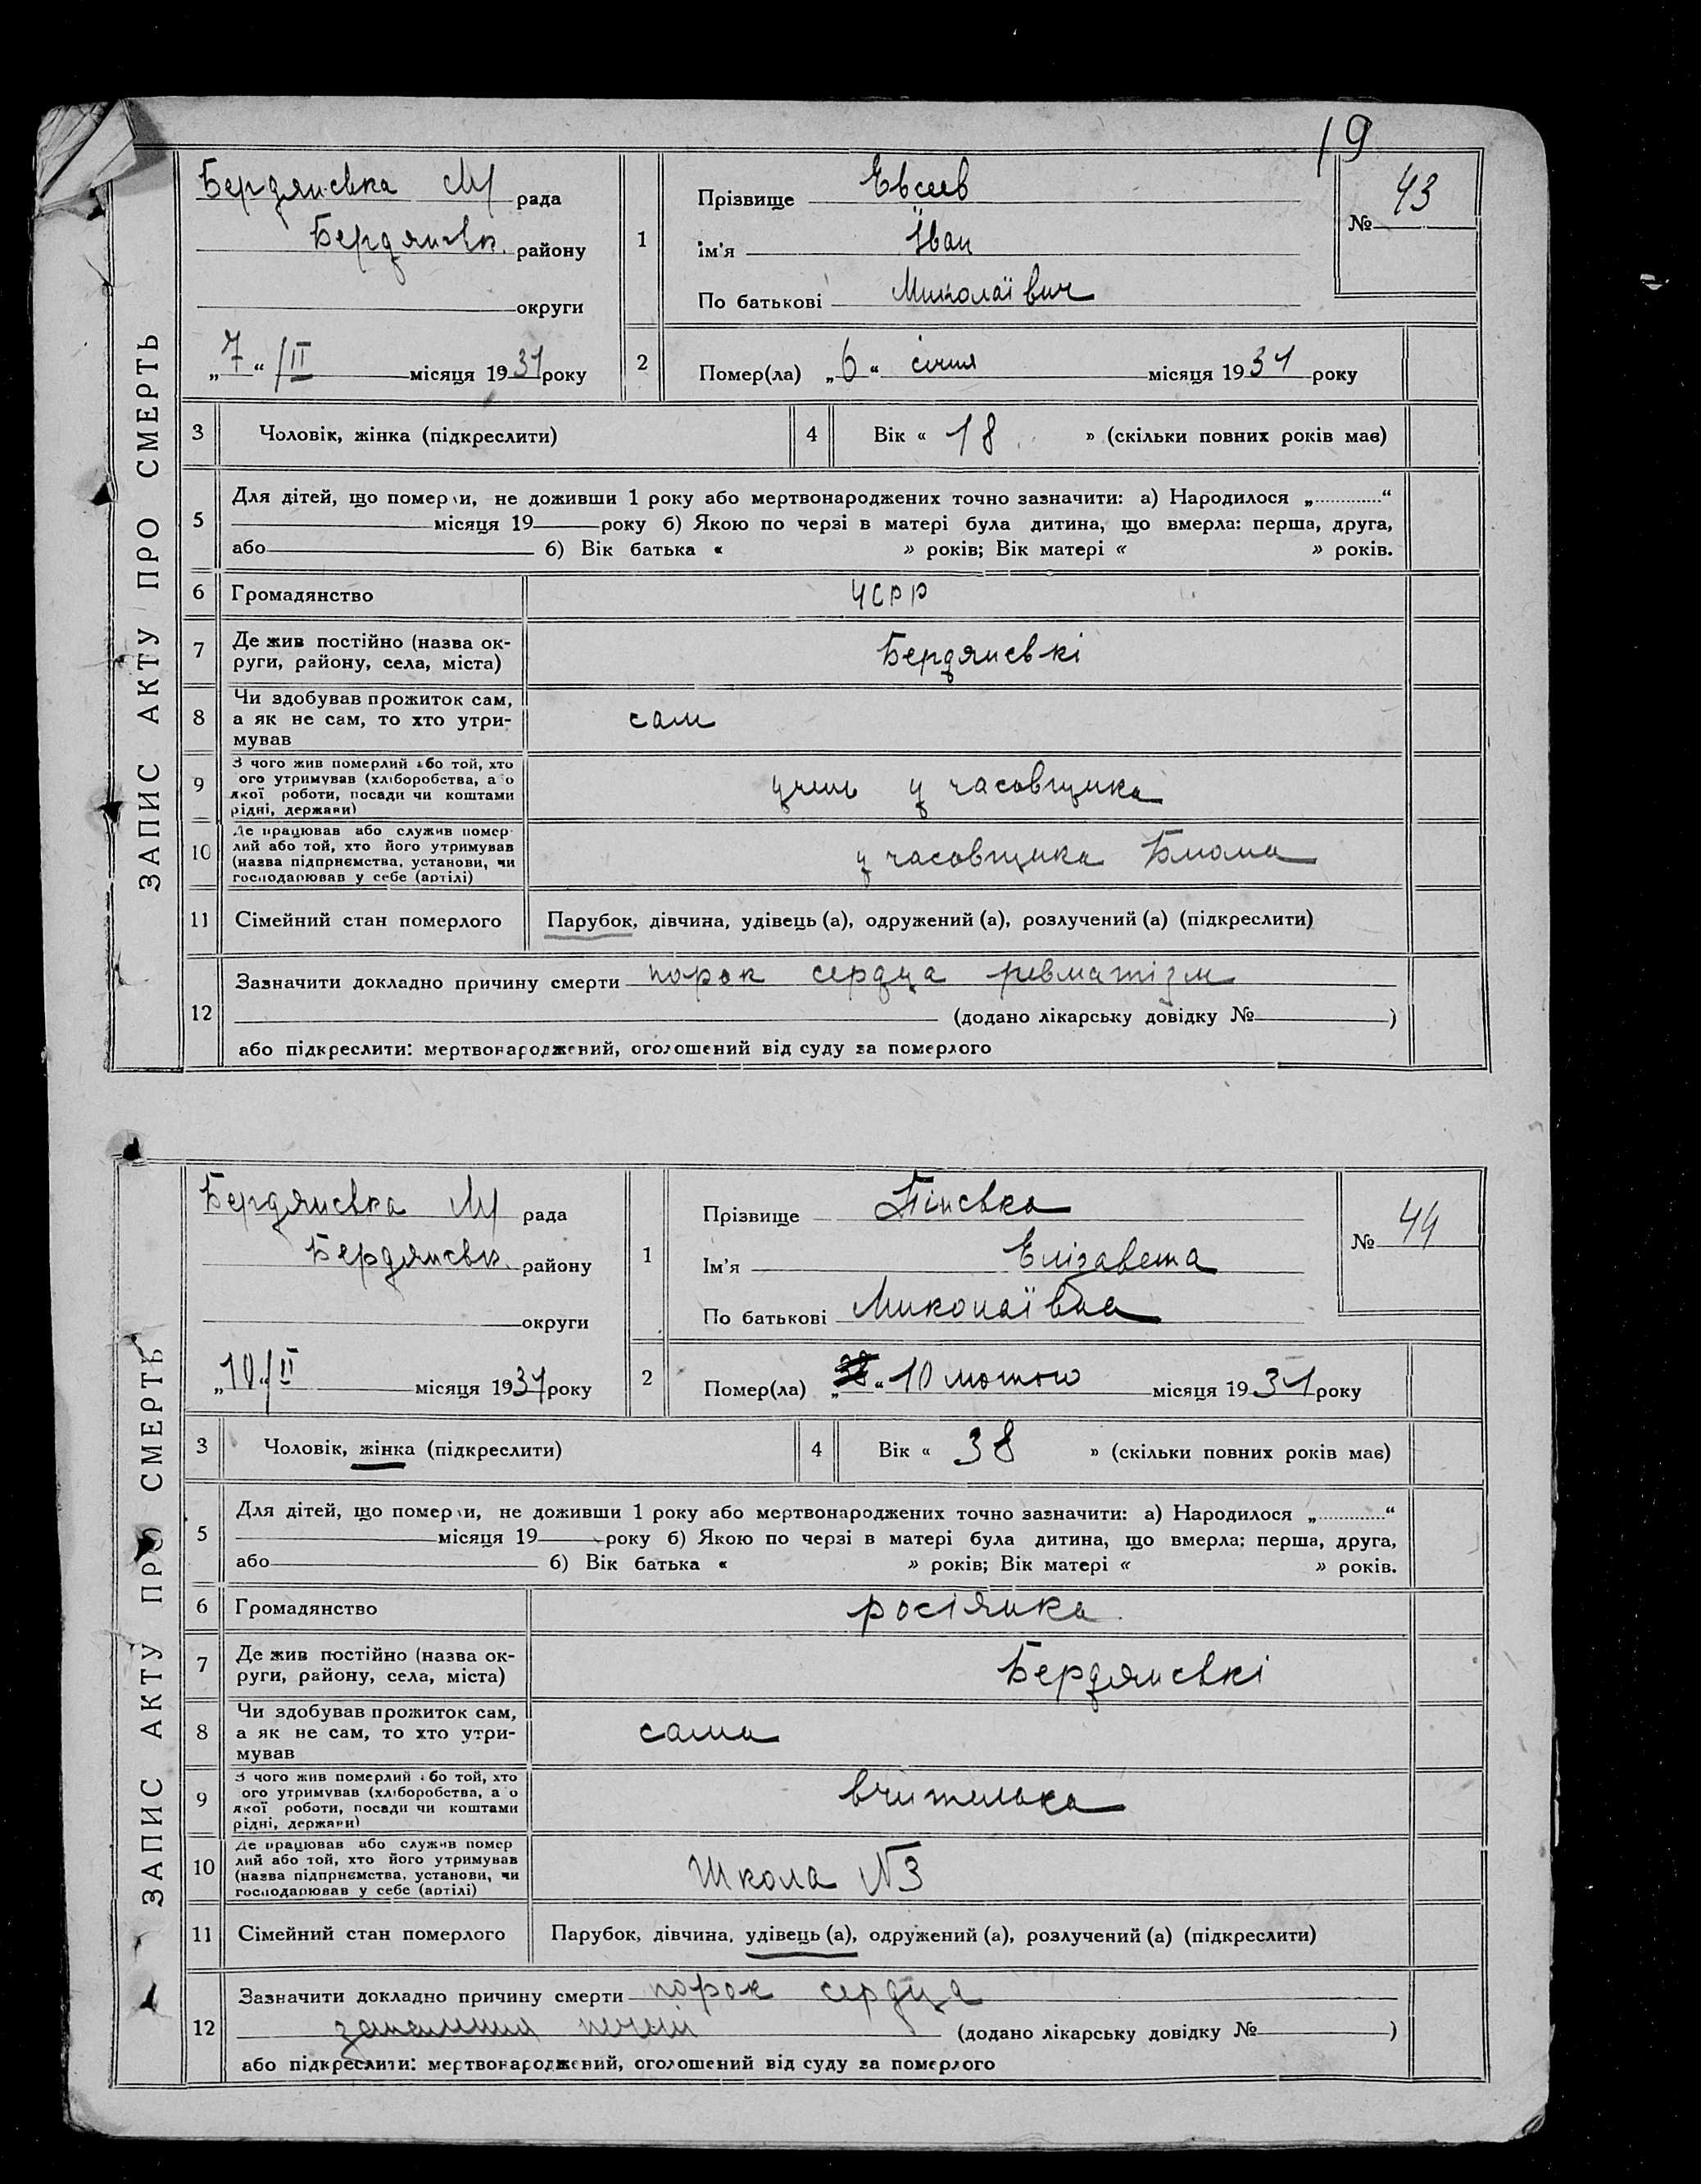 19
ЗАПИС АКТУ ПРО СМЕРТЬ
Бердянська М/ рада
Бердянськ. району
округи
„7“ /II місяця 1931 року
1
Прізвище Евсеев
ім'я Іван
По батькові Миколаївич
№ 43
2
Помер(ла) „6“ січня місяця 1931 року
3 Чоловік, жінка (підкреслити)
4 Вік « 18 » (скільки повних років має)
5 Для дітей, що помер и, не доживши 1 року або мертвонароджених точно зазначити: а) Народилося „ “
місяця 19 року б) Якою по черзі в матері була дитина, що вмерла: перша, друга,
або б) Вік батька « » років; Вік матері « » років.
6 Громадянство УСРР
7 Де жив постійно (назва ок-
руги, району, села, міста) Бердянські
8 Чи здобував прожиток сам,
а як не сам, то хто утри-
мував
сам
9 З чого жив померлий або той, хто
ого утримував (хліборобства, а о
якої роботи, посади чи коштами
рідні, держави)
учень у часовщика
10 Де працював або служив помер
лий або той, хто його утримував
(назва підпрнємства, установи, чи
господарював у себе (артілі)
у часовщика
11 Сімейний стан померлого Парубок, дівчина, удівець (а), одружений (а), розлучений (а) (підкреслити)
12 Зазначити докладно причину смерти порок сердца ревматізм
(додано лікарську довідку № )
або підкреслити: мертвонароджений, оголошений від суду за померлого
ЗАПИС АКТУ ПРО СМЕРТЬ
Бердянська М/ рада
Бердянськ. району
округи
„10“/II місяця 1931 року
1
Прізвище Пінська
Ім'я Елізавета
По батькові Миколаївна
№ 44
2
Помер(ла) „ “ 10 лютого місяця 1931 року
3 Чоловік, жінка (підкреслити)
4 Вік « 38 » (скільки повних років має)
5 Для дітей, що помер и, не доживши 1 року або мертвонароджених точно зазначити: а) Народилося „ “
місяця 19 року б) Якою по черзі в матері була дитина, що вмерла: перша, друга,
або б) Вік батька « » років; Вік матері « » років.
6 Громадянство росіянка
7 Де жив постійно (назва ок-
руги, району, села, міста) Бердянські
8 Чи здобував прожиток сам,
а як не сам, то хто утри-
мував
сама
9 З чого жив померлий або той, хто
ого утримував (хліборобства, а о
якої роботи, посади чи коштами
рідні, держави)
вчителька
10 Де працював або служив помер
лий або той, хто його утримував
(назва підпрнємства, установи, чи
господарював у себе (артілі)
Школа №3
11 Сімейний стан померлого Парубок, дівчина, удівець (а), одружений (а), розлучений (а) (підкреслити)
12 Зазначити докладно причину смерти порок сердца
(додано лікарську довідку № )
або підкреслити: мертвонароджений, оголошений від суду за померлого